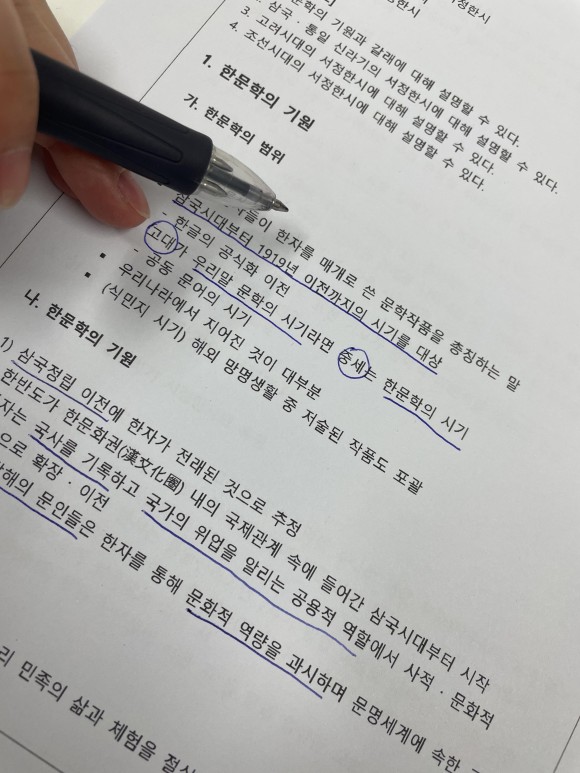 정한시
정한시
문학의 기원과 갈래에 대해 설명할 수 있다.
2. 삼국·통일 신라기의 서정한시에 대해 설명할 수 있다.
3. 고려시대의 서정한시에 대해 설명할 수 있다.
4. 조선시대의 서정한시에 대해 설명할 수 있다.
1. 한문학의 기원
가. 한문학의 범위
들이 한자를 매개로 쓴 문학작품을 총칭하는 말
삼국시대부터 1919년 이전까지의 시기를 대상
- 한글의 공식화 이전
고대가 우리말 문학의 시기라면 중세는 한문학의 시기
- 공동 문어의 시기
▪ 우리나라에서 지어진 것이 대부분
▪ (식민지 시기) 해외 망명생활 중 저술된 작품도 포괄
나. 한문학의 기원
1) 삼국정립 이전에 한자가 전래된 것으로 추정
한반도가 한문화권(漢文化圈) 내의 국제관계 속에 들어간 삼국시대부터 시작
자는 국사를 기록하고 국가의 위업을 알리는 공용적 역할에서 사적·문화적
으로 확장·이전
해의 문인들은 한자를 통해 문화적 역량을 과시하며 문명세계에 속한
리 민족의 삶과 체험을 절